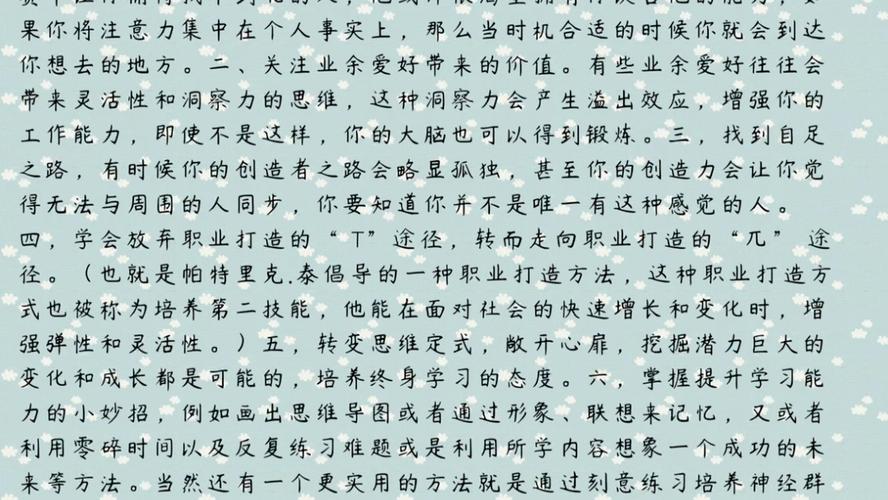 果你将注意力集中在个人事实上，那么当时机合适的时候你就会到达
你想去的地方。二、关注业余爱好带来的价值。有些业余爱好往往会
带来灵活性和洞察力的思维，这种洞察力会产生溢出效应，增强你的
工作能力，即使不是这样，你的大脑也可以得到锻炼。三，找到自足
之路，有时候你的创造者之路会略显孤独，甚至你的创造力会让你觉
得无法与周围的人同步，你要知道你并不是唯一有这种感觉的人。
四，学会放弃职业打造的“T”途径，转而走向职业打造的“兀” 途
径。（也就是帕特里克.泰倡导的一种职业打造方法，这种职业打造方
式也被称为培养第二技能，他能在面对社会的快速增长和变化时，增
强弹性和灵活性。）五，转变思维定式，敞开心扉，挖掘潜力巨大的
变化和成长都是可能的，培养终身学习的态度。六，掌握提升学习能
力的小妙招，例如画出思维导图或者通过形象、联想来记忆，又或者
利用零碎时间以及反复练习难题或是利用所学内容想象一个成功的未
来等方法。当然还有一个更实用的方法就是通过刻意练习培养神经群